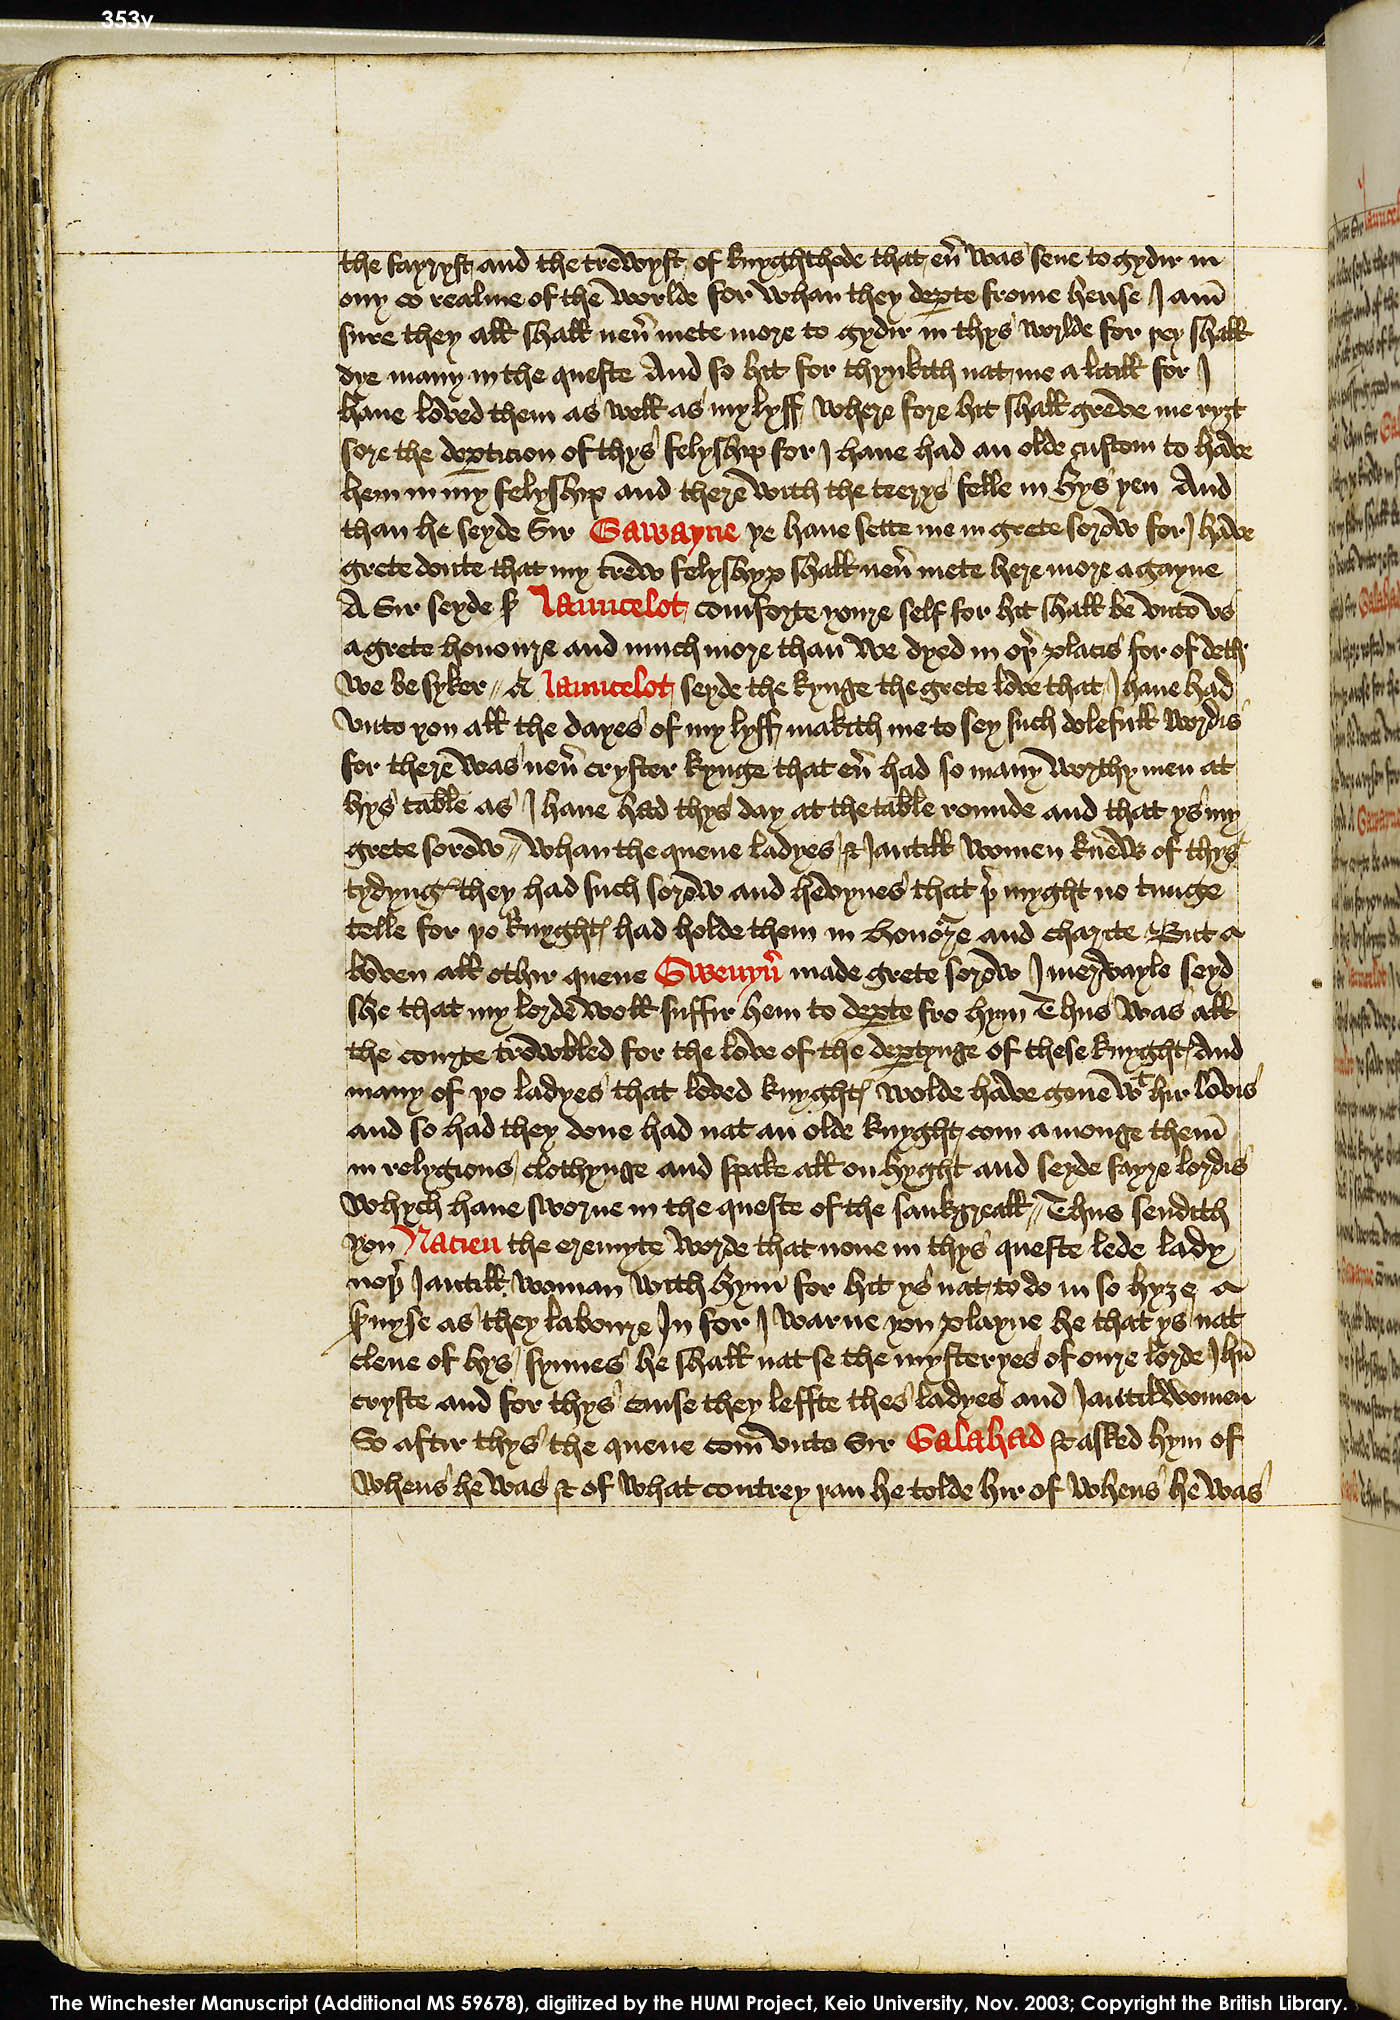 353v
the fayryst and the trewyst of knyghthode that eu̾ was sene to gydir in
ony co realme of the worlde for whan they dep̱te frome hense I am̄
sure they all shall neu̾ mete more to gydir in thys worlde for þey shall
dye many in the queste And so hit for thynkith nat me a litill for I
haue loved them as well as my lyff where fore hit shall greve me ryȝt
sore the dep̱ticion of thys felyship for I haue had an olde custom to have
hem in my felyship and there with the teerys felle in hys yen And
than he seyde Sir Gawayne ye haue sette me in grete sorow for I have
grete doute that my trew felyshyp shall neu̾ mete here more a gayne
A Sir seyde sͬ Launcelot comforte youre self for hit shall be vnto vs
a grete honoure and much more than we dyed in oþ̾ placis for of deth
we be syker // A Launcelot seyde the kynge the grete love that I haue had
vnto you all the dayes of my lyff makith me to sey such dolefull wordis
for there was neu̾ cryster kynge that eu̾ had so many worthy men at
hys table as I haue had thys day at the table rounde and that ys my
grete sorow // Whan the quene ladyes & Iantill women knew of thys
tydyngꝭ they had such sorow and hevynes that þ̾ myght no tunge
telle for þo knyghtꝭ had holde them in honoure and charite But a
boven all othir quene Gwenyu̾ made grete sorow I mervayle seyd
she that my lorde woll suffir hem to dep̱te fro hym Thus was all
the courte trowbled for the love of the dep̱tynge of these knyghtꝭ And
many of þo ladyes that loved knyghtꝭ wolde have gone wᵗ hir lovis
and so had they done had nat an olde knyght com a monge them̄
in relygious clothynge and spake all on hyght and seyde fayre lordis
whych haue sworne in the queste of the sankgreall // Thus sendith
you Nacien the eremyte worde that none in thys queste lede lady
noþ̾ Iantill woman with hym for hit ys nat to do in so hyȝe a
seruyse as they laboure In for I warne you playne he that ys nat
clene of hys synnes he shall nat se the mysteryes of oure lorde Ihū
cryste and for thys cause they leffte thes ladyes and Iantilwomen
So aftir thys the quene com̄ vnto Sir Galahad & asked hym of
whens he was & of what contrey þan he tolde hir of whens he was
The Winchester Manuscript (Additional MS 59678), digitized by the HUMI Project, Keio University, Nov. 2003; Copyright the British Library.